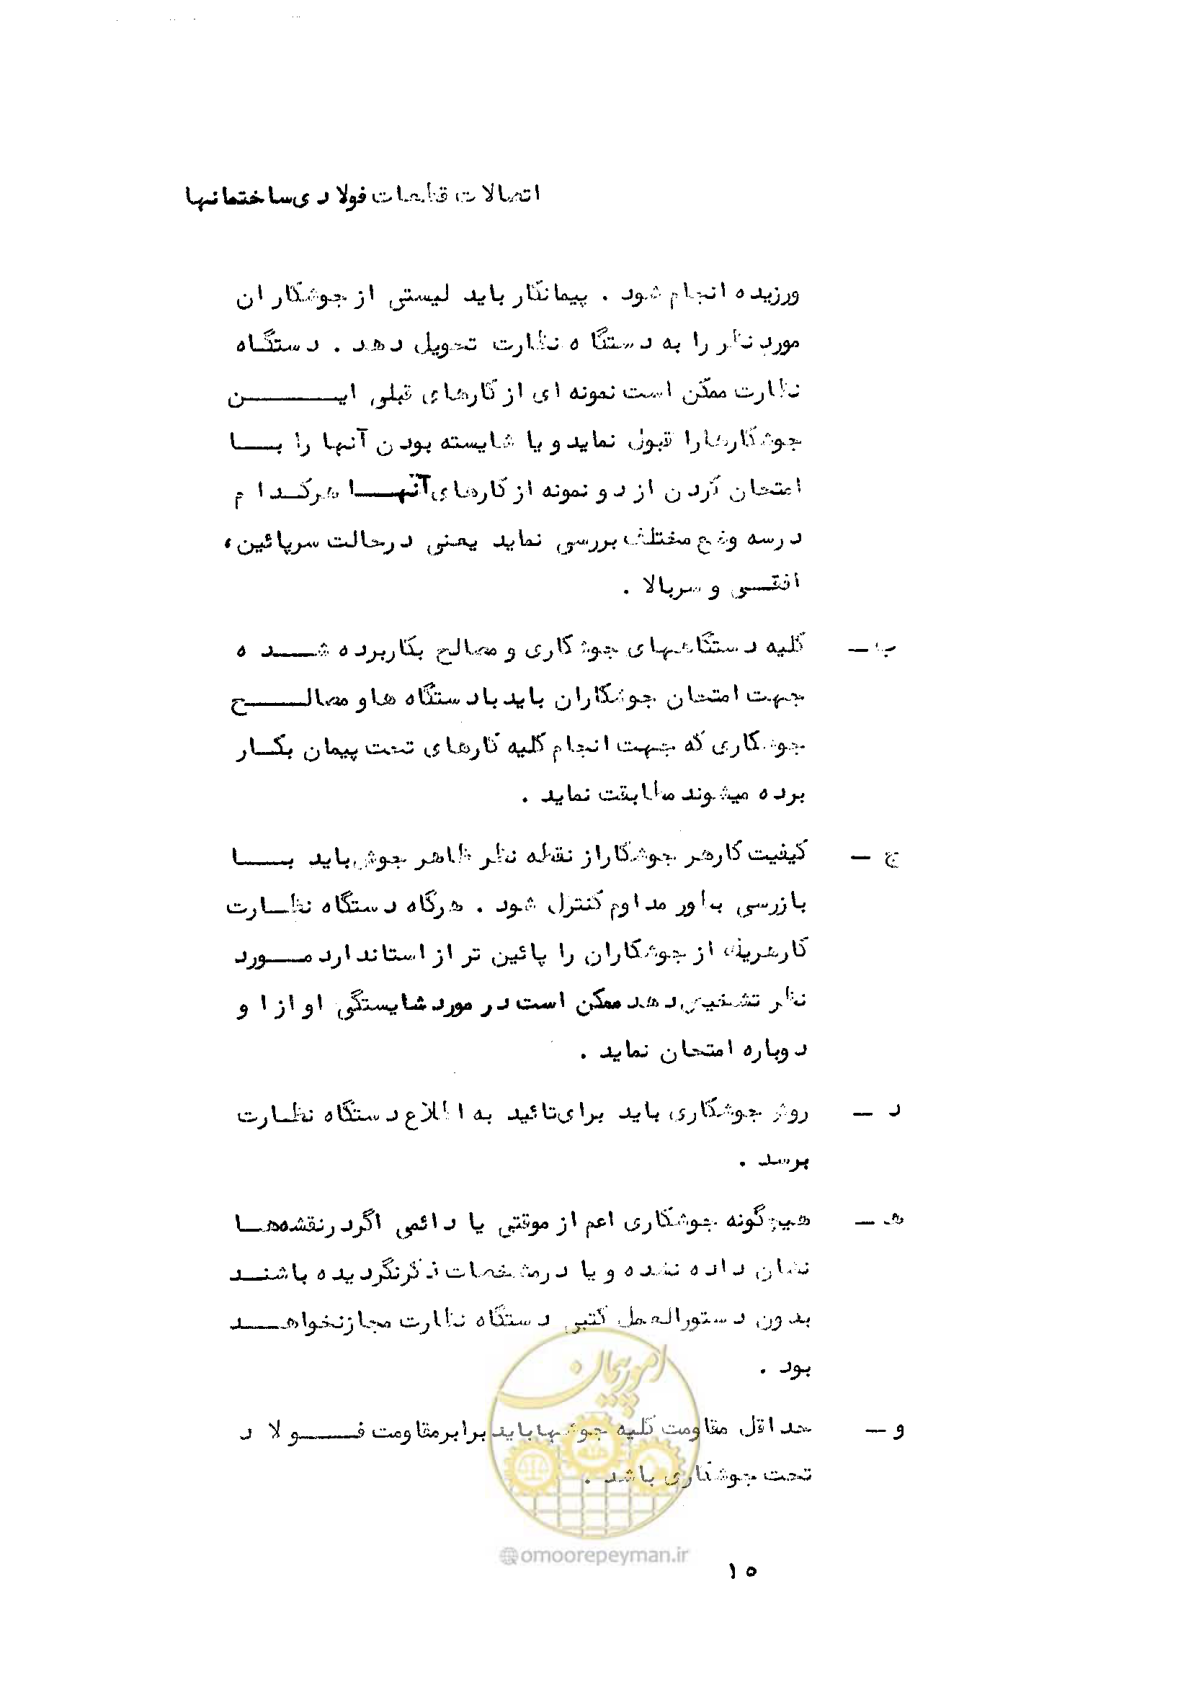 اتصالات قطعات فولادی ساختمانها
ورزیده انجام شود . پیمانکار باید لیستی از جوشکاران
مورد نظر را به دستگاه نظارت تحویل دهد . دستگاه
نظارت ممکن است نمونه ای از کارهای قبلی ایــــن
جوشکارها را قبول نماید و یا شایسته بودن آنها را بــا
امتحان کردن از دو نمونه از کارهای آنهــا هرکدام
در سه وضع مختلف بررسی نماید یعنی در حالت سرپائین ،
افقــی و سربالا .
ب – کلیه دستگاههای جوشکاری و مصالح بکاربرده شــده
جهت امتحان جوشکاران باید با دستگاه ها و مصالـــح
جوشکاری که جهت انجام کلیه کارهای تحت پیمان بکــار
برده میشوند مطابقت نماید .
ج – کیفیت کار هر جوشکار از نقطه نظر ظاهر جوش باید بــا
بازرسی بطور مداوم کنترل شود . هرگاه دستگاه نظــارت
کار هریک از جوشکاران را پائین تر از استاندارد مــورد
نظر تشخیص دهد ممکن است در مورد شایستگی او از او
دوباره امتحان نماید .
د – روش جوشکاری باید برای تائید به اطلاع دستگاه نظــارت
برسد .
هـ – هیچگونه جوشکاری اعم از موقتی یا دائمی اگر در نقشه‌هــا
نشان داده نشده و یا در مشخصات ذکر نگردیده باشنــد
بدون دستورالعمل کتبی دستگاه نظارت مجاز نخواهــد
بود .
و – حداقل مقاومت کلیه جوشها باید برابر مقاومت فــولاد
تحت جوشکاری باشد .
امور پیمان
@omoorepeyman.ir
۱۵